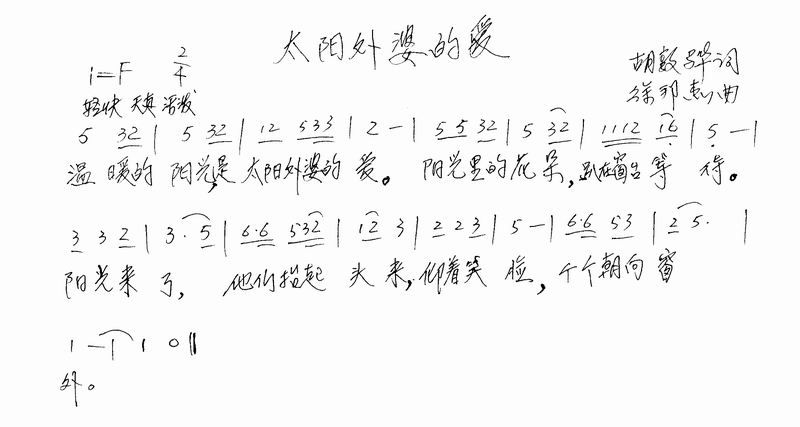 太阳外婆的爱
1=F 2/4
胡敦骅词
轻快 天真 活泼
徐邦杰曲
5 32 | 5 32 | 12 533 | 2 — | 55 32 | 5 32 | 1112 16 | 5 — |
温 暖的 阳光是 太阳外婆的 爱。 阳光里的花 朵,趴在窗台 等 待。
3 3 2 | 3. 5 | 6.6 532 | 12 3 | 2 2 3 | 5 — | 6.6 53 | 2 5. |
阳光来 了, 他们抬起 头 来,仰着笑 脸,个个朝向 窗
1 — | 1 0 ‖
外。